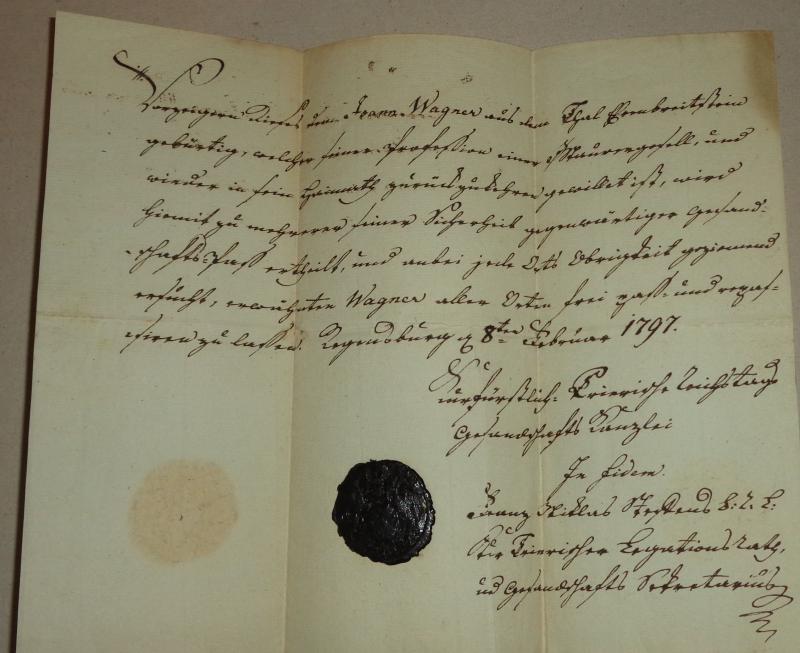 Vorzeigern dieses dem Joana Wagner aus dem Thal Erenbreitstein
gebürtig, welcher seiner Profession einer Maurergesell, und
wieder in sein Heimath zurückzukehren gewillet ist, wird
hiemit zu mehrerer seiner Sicherheit gegenwärtiger Gesand-
schafts-Pass ertheilt, und anbei jede Orts Obrigkeit geziemend
ersucht, erwähnten Wagner aller Orten frei pass- und repas-
siren zu lassen. Regensburg d 8ten Februar 1797.
Kurfürstlich-Trierische Reichstags
Gesandschafts Kanzlei
In fidem.
Franz Niklas Steffens
Kur Trierischer Legations Rath,
und Gesandschafts Sekretarius